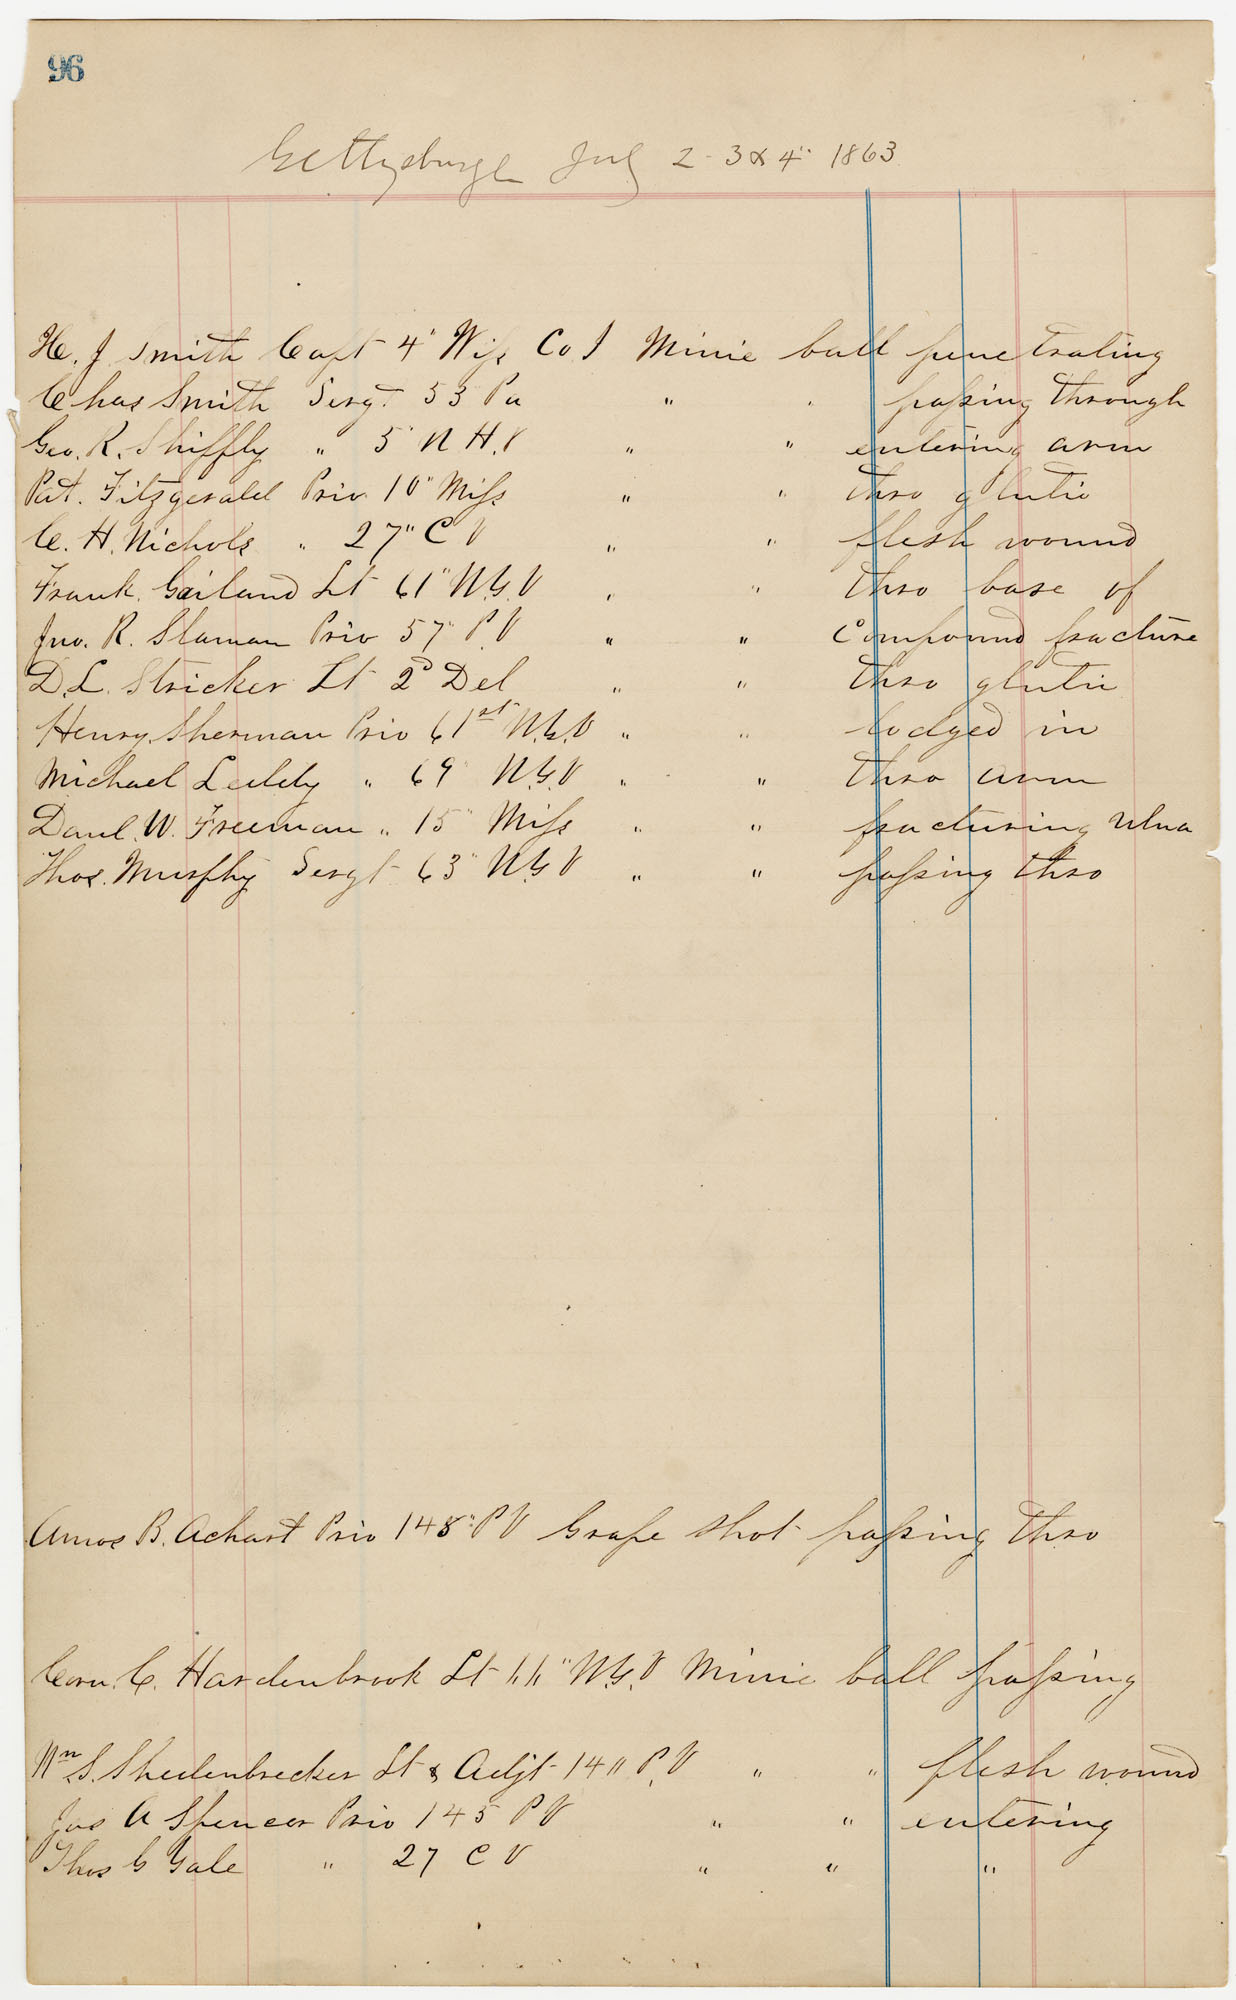 96
Gettysburgh July 2 - 3 & 4" 1863
H. J Smith Capt 4" Wis Co I Minie ball penetrating
Chas Smith Sergt. 53 Pa " " passing through
Geo. R. Shiffly " 5" N H. V " " entering arm
Pat. Fitzgerald Priv 10" Miss " " thro glutic
C. H. Nichols " 27" C V " " flesh wound
Frank Lt 61" N.Y. V " " thro base of
Jno. R. Slaman Priv 57" P. V " " compound fracture
D. L. Stricker Lt 2d Del " " thro glutic
Henry Sherman Priv 61st N.Y. V " " lodged in
Michael Leddy " 69 N.Y. V " " thro arm
Danl. W. Freeman " 15" Miss " " fracturing ulna
Thos. Murphy Sergt 63" N.Y V " " passing thro
Amos B. Achart Priv 148" P V Grape shot passing thro
Corn. C. Hardenbrook Lt " N.Y. V Minie ball passing
Wm S. Lt & Adjt P. V " " flesh wound
Jas A Spencer Priv 145 P V " " entering
Thos C Gale " 27 C V " " "